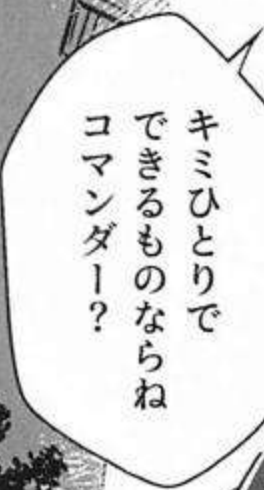 キミひとりで
できるものならね
コマンダー？